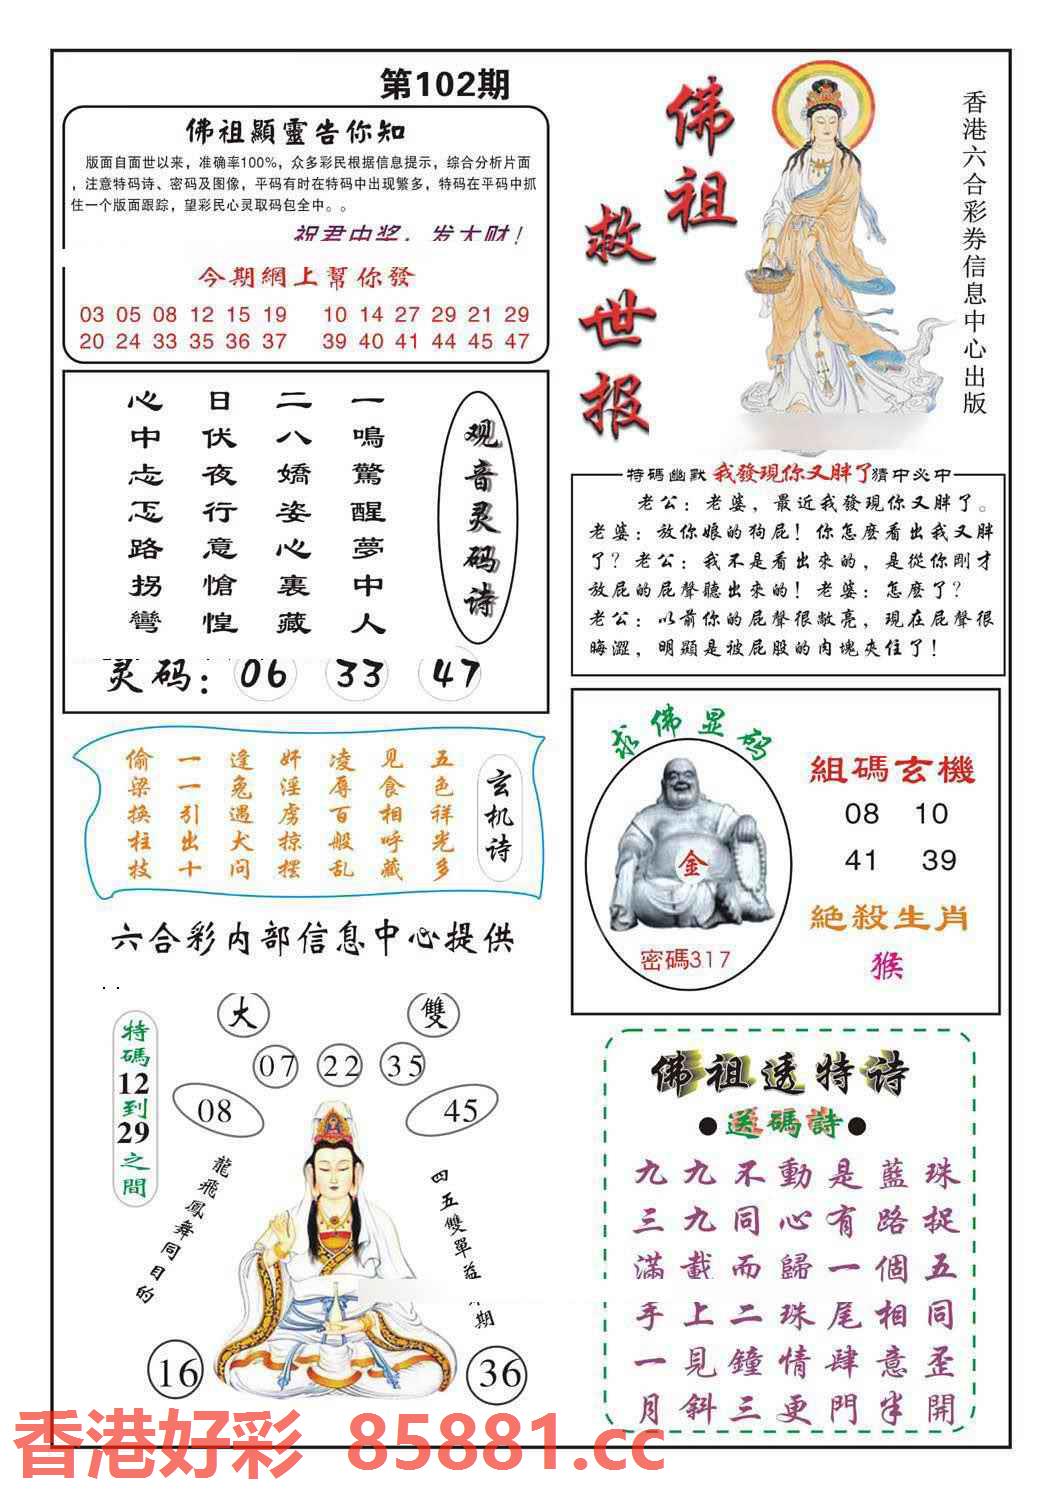 第102期
佛祖顯靈告你知
版面自面世以来，准确率100%，众多彩民根据信息提示，综合分析片面
，注意特码诗、密码及图像，平码有时在特码中出现繁多，特码在平码中抓
住一个版面跟踪，望彩民心灵取码包全中。。
祝君中奖，发大财！
今期網上幫你發
03 05 08 12 15 19 10 14 27 29 21 29
20 24 33 35 36 37 39 40 41 44 45 47
佛祖
救世报
香港六合彩券信息中心出版
观音灵码诗
一鳴驚醒夢中人
二八嬌姿心裏藏
日伏夜行意愴惶
心中忐忑路拐彎
灵码：06 33 47
特碼幽默 我發現你又胖了 猜中必中
老公：老婆，最近我發現你又胖了。
老婆：放你娘的狗屁！你怎麼看出我又胖
了？老公：我不是看出來的，是從你剛才
放屁的屁聲聽出來的！老婆：怎麼了？
老公：以前你的屁聲很敞亮，現在屁聲很
晦澀，明顯是被屁股的肉塊夾住了！
玄机诗
五色祥光多
见食相呼藏
凌辱百般乱
奸淫虏掠摆
逢兔遇犬问
一一引出十
偷梁换柱技
六合彩内部信息中心提供
求佛显码
金
密碼317
組碼玄機
08 10
41 39
絕殺生肖
猴
特碼12到29之間
大 雙
07 22 35
08 45
龍飛鳳舞同目的
四五雙單益期
16 36
佛祖透特诗
●送碼詩●
九九不動是藍珠
三九同心有路捉
滿載而歸一個五
手上二珠尾相同
一見鐘情肆意歪
月斜三更門半開
香港好彩 85881.cc